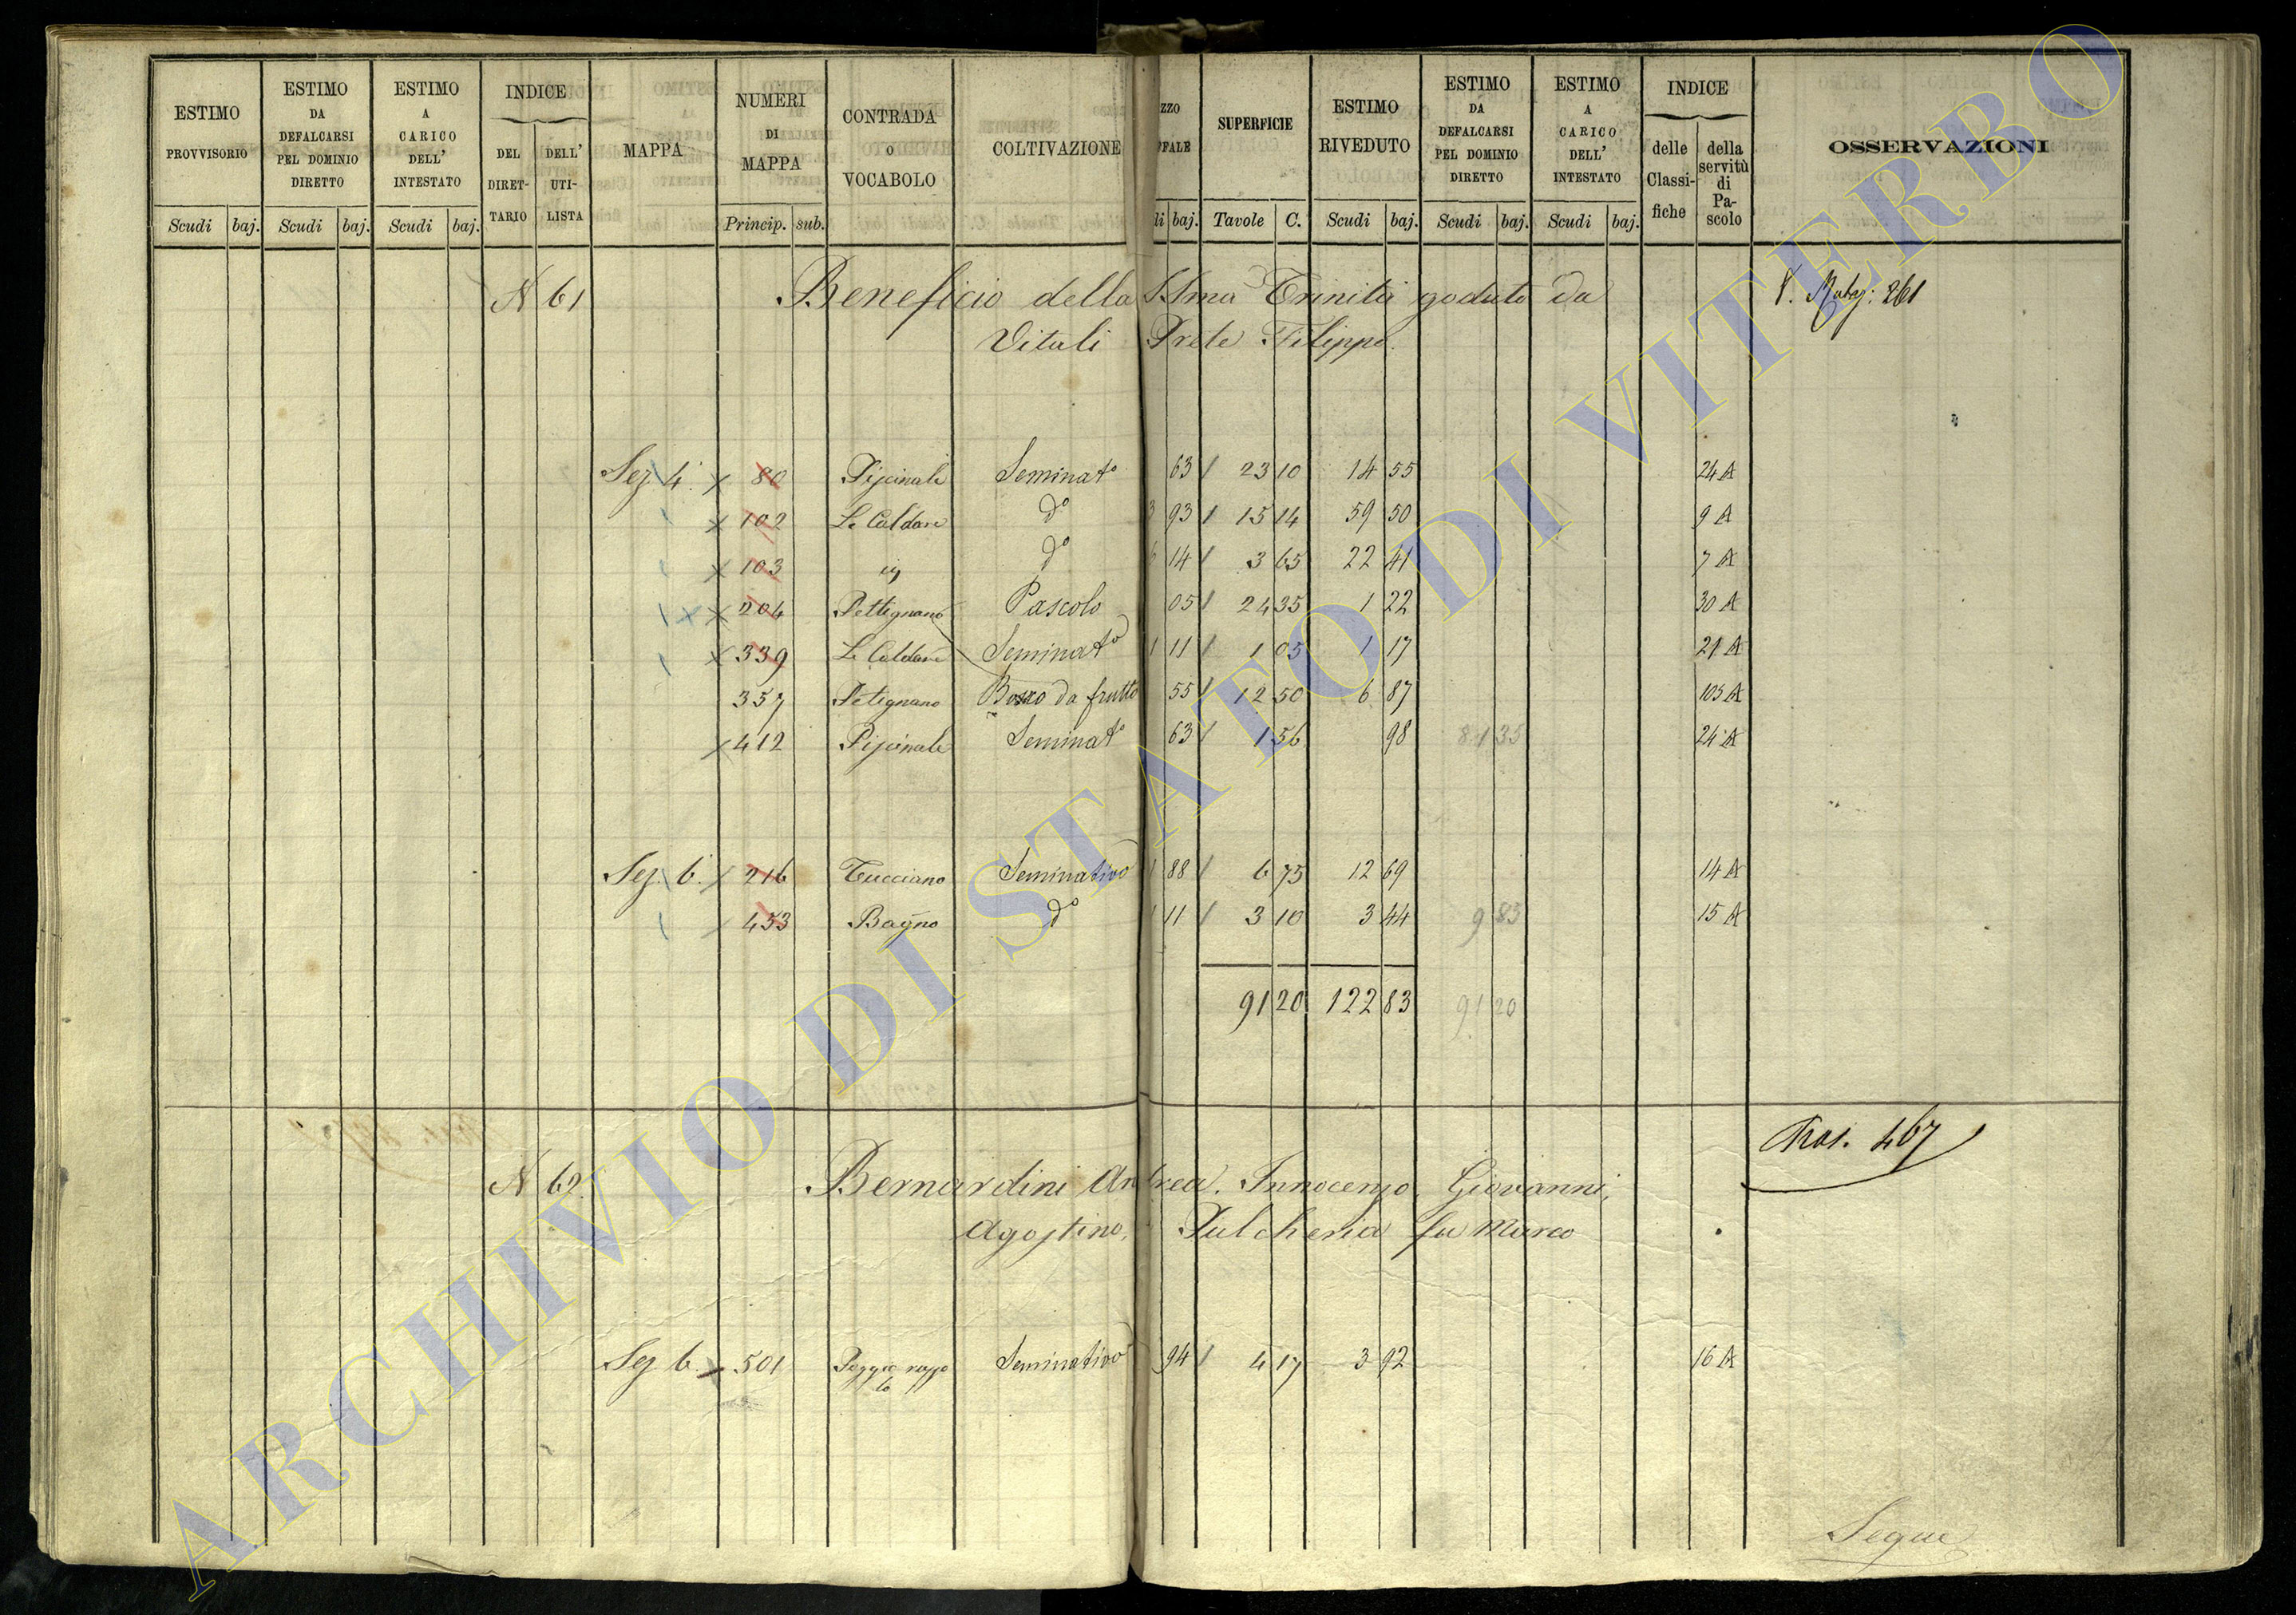 ESTIMO PROVVISORIO Scudi baj.
ESTIMO DA DEFALCARSI PEL DOMINIO DIRETTO Scudi baj.
ESTIMO A CARICO DELL' INTESTATO Scudi baj.
INDICE DEL DIRET- TARIO DELL' UTI- LISTA
MAPPA
NUMERI DI MAPPA Princip. sub.
CONTRADA O VOCABOLO
COLTIVAZIONE
ZZO FFALE di baj.
SUPERFICIE Tavole C.
ESTIMO RIVEDUTO Scudi baj.
ESTIMO DA DEFALCARSI PEL DOMINIO DIRETTO Scudi baj.
ESTIMO A CARICO DELL' INTESTATO Scudi baj.
INDICE delle Classi- fiche della servitù di Pa- scolo
OSSERVAZIONI
N 61 Beneficio della SSma Trinità goduto da
Vitali Prete Filippo
261
Sez 4. 80 Piscinale Seminato 63 23 10 14 55 24 A
102 Le Caldare do 3 93 15 14 59 50 9 A
103 do 6 14 3 65 22 41 7 A
204 Pettignano Pascolo 05 24 35 1 22 30 A
339 Le Caldare Seminato 1 11 1 05 1 17 21 A
357 Petignano Bosco da frutto 55 12 50 6 87 103 A
412 Piscinale Seminato 63 1 56 98 81 35 24 A
Sez. 6. 216 Tucciano Seminativo 1 88 6 75 12 69 14 A
453 Bagno do 1 11 3 10 3 44 9 85 15 A
91 20 122 83 91 20
Tras. 467
N 62. Bernardini Andrea, Innocenzo, Giovanni,
Agostino, Pulcheria fu Marco
Sez 6. 501 Poggio Seminativo 94 4 17 3 92 16 A
Segue
ARCHIVIO DI STATO DI VITERBO